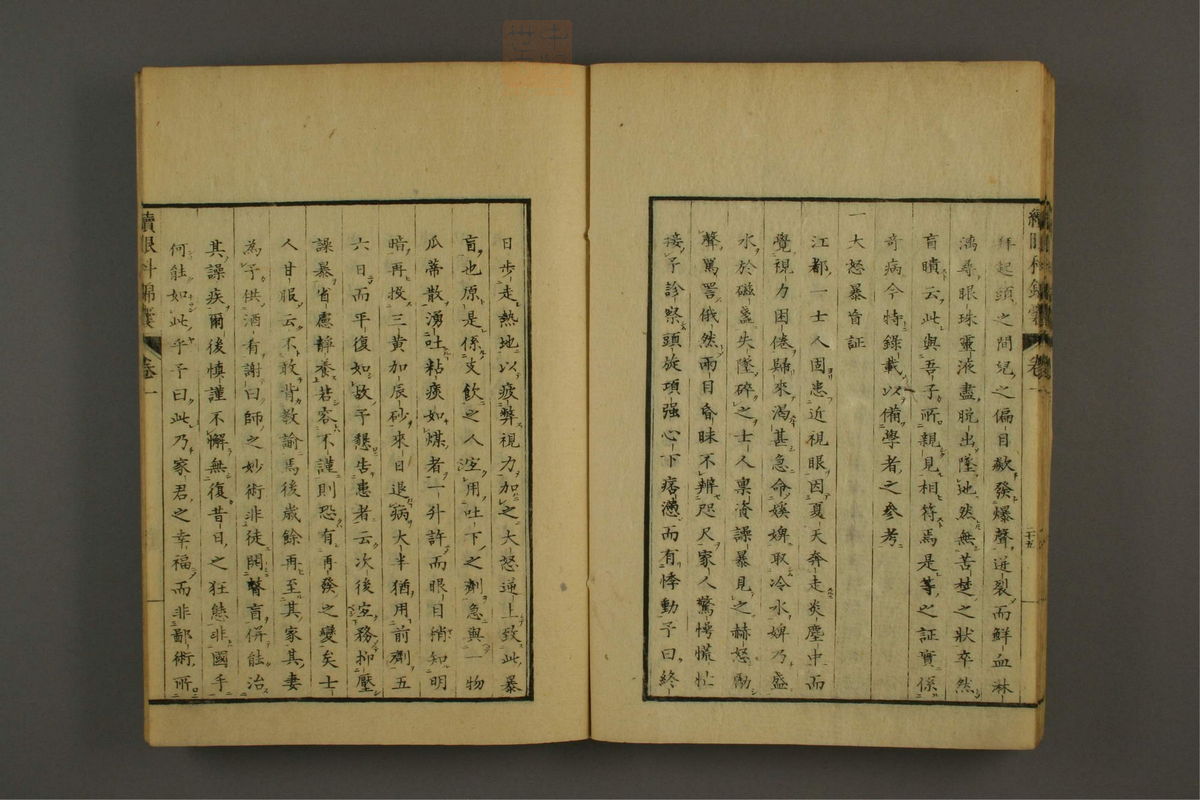 拜起頭之間兒之偏目歘發爆聲迸裂而鮮血淋
漓尋眼珠靈液盡脫出墜地然無苦楚之狀卒然
盲瞶云此與吾子所親見相符焉是等之証實係
奇病今特錄載以備學者之參考
一大怒暴盲証
江都一士人固患近視眼因夏天奔走炎塵中而
覺視力困倦歸來渴甚急命婢取冷水婢乃盛
水於磁盞失墜碎之士人稟資譟暴見之赫怒勵
聲罵詈俄然兩目昏昧不辨咫尺家人驚愕慌忙
接予診察頭旋項强心下痞懣而有悸動予曰終
日步走熱地以疲弊視力加之大怒逆上致此暴
盲也原是係支飮之人宜用吐下之劑急與一物
瓜蒂散湧吐粘痰如煤者一升許而眼目稍知明
暗再投三黃加辰砂來日退病大半猶用前劑五
六日而平復如故予懇告患者云次後宜務抑壓
譟暴省慮靜養若容不謹則恐有再發之變矣士
人甘服云不敢背敎諭焉後歲餘再至其家其妻
為予供酒有謝曰師之妙術非徒開瞽盲併能治
其譟疾爾後慎謹不懈無復昔日之狂態非國手
何能如此乎予曰此乃家君之幸福而非鄙術所
續眼科錦囊 卷一
二十五